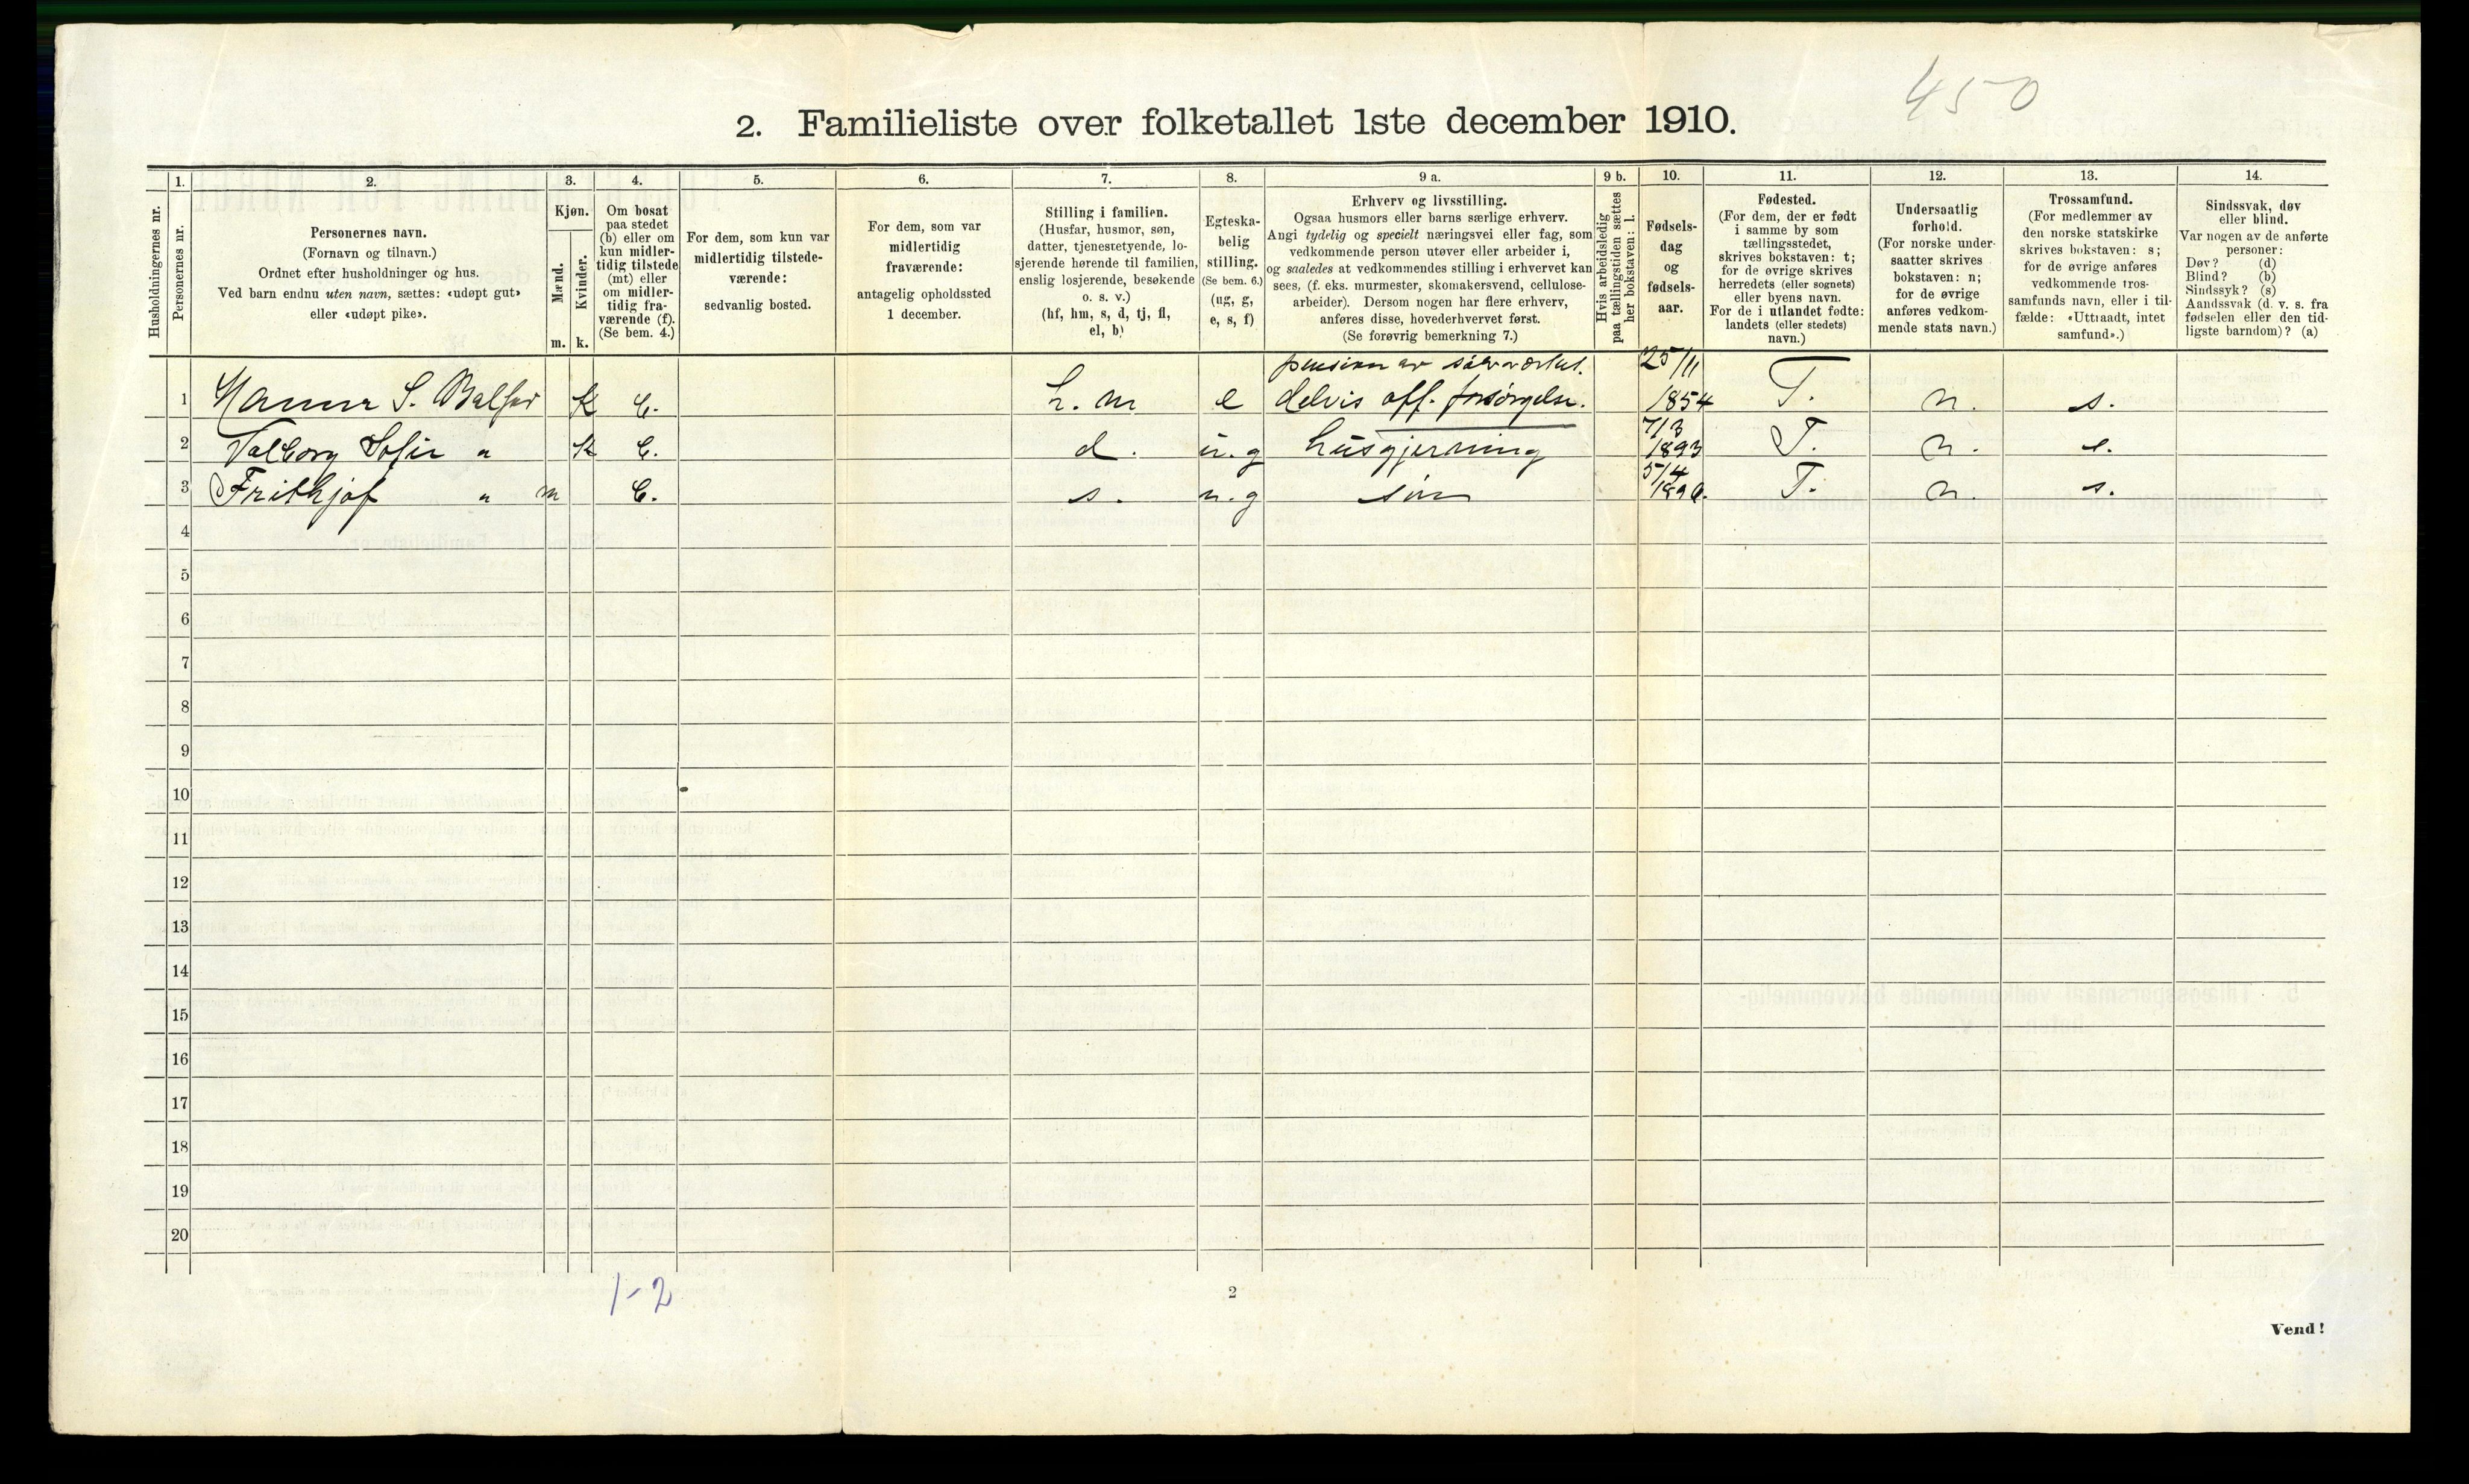 450
2. Familieliste over folketallet 1ste december 1910.
Husholdningernes nr.
1.
Personernes nr.
2.
Personernes navn.
(Fornavn og tilnavn.)
Ordnet efter husholdninger og hus.
Ved barn endnu uten navn, sættes: «udøpt gut»
eller «udøpt pike».
3.
Kjøn.
Mænd.
Kvinder.
m. k.
4.
Om bosat
paa stedet
(b) eller om
kun midler-
tidig tilstede
(mt) eller
om midler-
tidig fra-
værende (f).
(Se bem. 4.)
5.
For dem, som kun var
midlertidig tilstede-
værende:
sedvanlig bosted.
6.
For dem, som var
midlertidig
fraværende:
antagelig opholdssted
1 december.
7.
Stilling i familien.
(Husfar, husmor, søn,
datter, tjenestetyende, lo-
sjerende hørende til familien,
enslig losjerende, besøkende
o. s. v.)
(hf, hm, s, d, tj, fl,
el, b)
8.
Egteska-
belig
stilling.
(Se bem. 6.)
(ug, g,
e, s, f)
9 a.
Erhverv og livsstilling.
Ogsaa husmors eller barns særlige erhverv.
Angi tydelig og specielt næringsvei eller fag, som
vedkommende person utøver eller arbeider i,
og saaledes at vedkommendes stilling i erhvervet kan
sees, (f. eks. murmester, skomakersvend, cellulose-
arbeider). Dersom nogen har flere erhverv,
anføres disse, hovederhvervet først.
(Se forøvrig bemerkning 7.)
9 b.
Hvis arbeidsledig
paa tællingstiden sættes
her bokstaven: l.
10.
Fødsels-
dag
og
fødsels-
aar.
11.
Fødested.
(For dem, der er født
i samme by som
tællingsstedet,
skrives bokstaven: t;
for de øvrige skrives
herredets (eller sognets)
eller byens navn.
For de i utlandet fødte:
landets (eller stedets)
navn.)
12.
Undersaatlig
forhold.
(For norske under-
saatter skrives
bokstaven: n;
for de øvrige
anføres vedkom-
mende stats navn.)
13.
Trossamfund.
(For medlemmer av
den norske statskirke
skrives bokstaven: s;
for de øvrige anføres
vedkommende tros-
samfunds navn, eller i til-
fælde: «Uttraadt, intet
samfund».)
14.
Sindssvak, døv
eller blind.
Var nogen av de anførte
personer:
Døv? (d)
Blind? (b)
Sindssyk? (s)
Aandssvak (d. v. s. fra
fødselen eller den tid-
ligste barndom)? (a)
pension av 25/11
1 Hanna S. k b. h. m e delvis off. forsørgelse. 1854 T. n. s.
7/3
2 Valborg Sofie " k b. d. u. g husgjerning 1893 T. n. s.
5/4
3 Frithjof " m b. s. u. g søn T. n. s.
4
5
6
7
8
9
10
11
12
13
14
15
16
17
18
19
20
1-2
2
Vend!